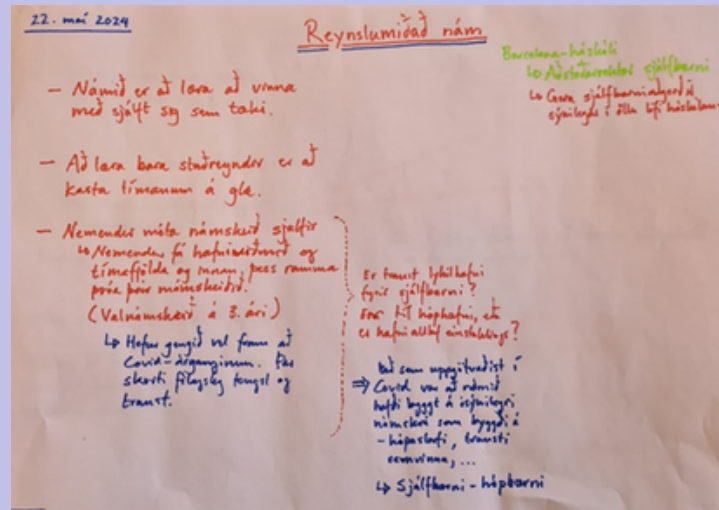 22. maí 2024
Reynslumiðað nám
Barcelona-háskóli
↳ Aðstoðarrektor sjálfbærni
↳ Gera sjálfbærni
sýnilega í öllu lífi háskólans
— Námið er að læra að vinna
með sjálft sig sem tæki.
— Að læra bara staðreyndir er að
kasta tímanum á glæ.
— Nemendur móta námskeið sjálfir
↳ Nemendur fá hæfniviðmið og
tímafjölda og innan þess ramma
þróa þeir námskeiðið.
(Valnámskeið á 3. ári)
↳ Hefur gengið vel fram að
Covid-árganginum. Þar
skorti félagsleg tengsl og
traust.
Er traust lykilhæfni
fyrir sjálfbærni?
Er til hóphæfni, eða
er hæfni alltaf einstaklings?
⇒ Það sem uppgötvaðist í
Covid var að námið
hafði byggt á ósýnilegri
námskrá sem byggði á
- hópastarfi, trausti
samvinna, ...
↳ Sjálfbærni - hópbærni